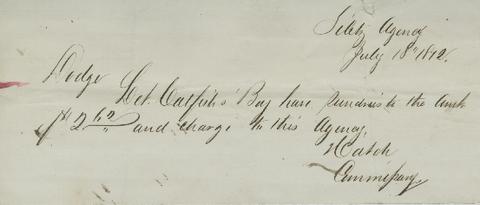 Siletz Agency
July 18" 1872.
Dodge
Let Catfish's Boy have sundries to the amt
of $2 62 and charge to this Agency.
Hatch
Commissary